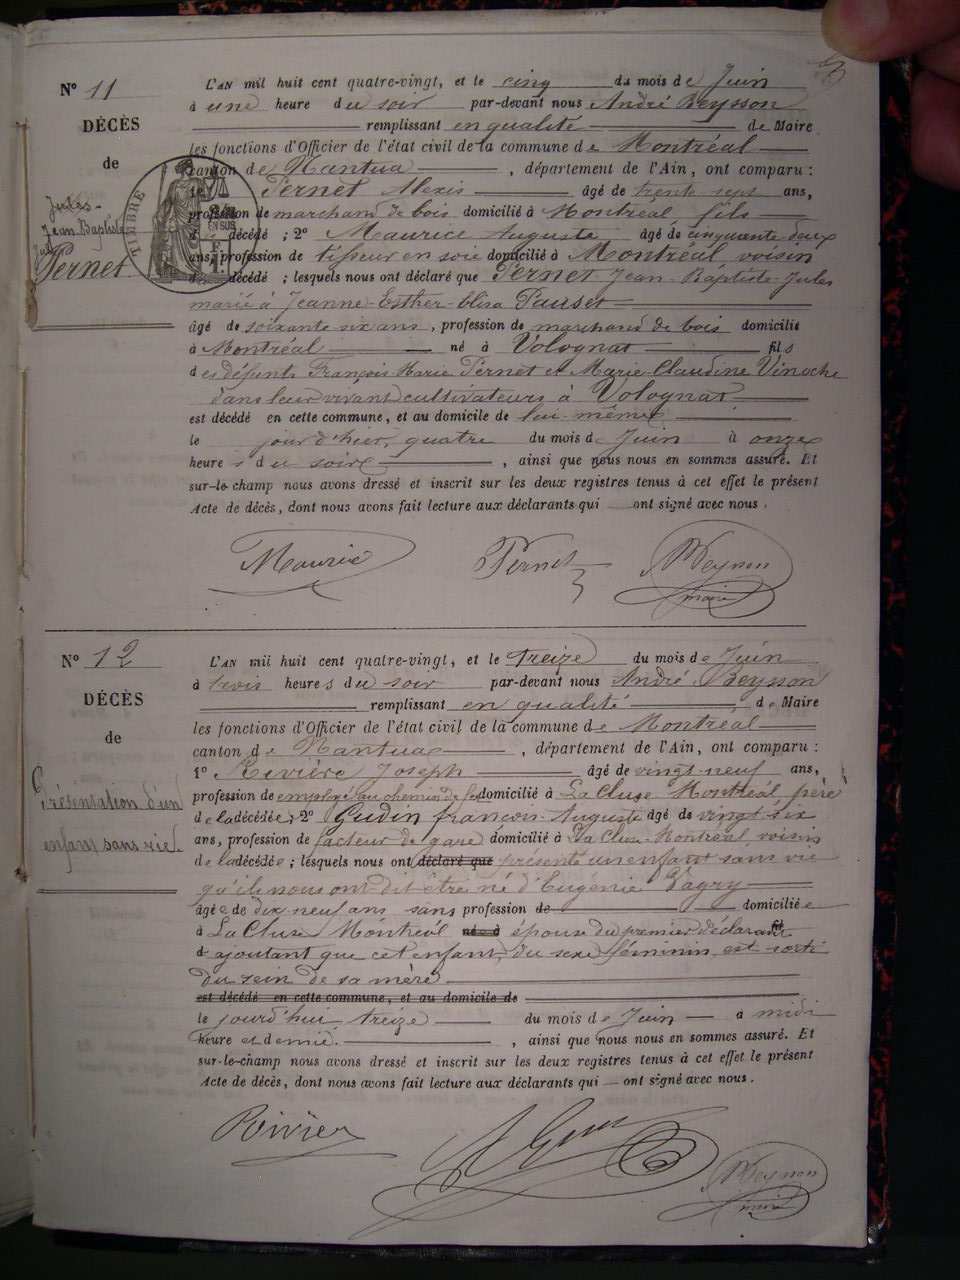 N° 11
DÉCÈS
de
Jules-
Jean Baptiste
Pernet
TIMBRE
EN SUS
L'AN mil huit cent quatre-vingt, et le cinq du mois de Juin
à une heure du soir par-devant nous André Reysson
remplissant en qualité de Maire
les fonctions d'Officier de l'état civil de la commune de Montréal
canton de Nantua, département de l'Ain, ont comparu :
Pernet Alexis âgé de trente sept ans,
profession de marchand de bois domicilié à Montréal, fils
décédé ; 2° Maurice Auguste âgé de cinquante deux
ans, profession de tisseur en soie domicilié à Montréal voisin
décédé ; lesquels nous ont déclaré que Pernet Jean-Baptiste-Jules
marié à Jeanne-Esther-Elisa Pauset
âgé de soixante six ans, profession de marchand de bois domicilié
à Montréal né à Volognat fils
des défunts François Marie Pernet et Marie-Claudine Vinoche
dans leur vivant cultivateurs à Volognat
est décédé en cette commune, et au domicile de lui-même
le jour d'hier, quatre du mois de Juin à onze
heures du soir, ainsi que nous nous en sommes assuré. Et
sur-le-champ nous avons dressé et inscrit sur les deux registres tenus à cet effet le présent
Acte de décès, dont nous avons fait lecture aux déclarants qui ont signé avec nous.
Maurice Pernet Reysson
maire
N° 12
DÉCÈS
de
Présentation d'un
enfant sans vie
L'AN mil huit cent quatre-vingt, et le treize du mois de Juin
à trois heures du soir par-devant nous André Reysson
remplissant en qualité de Maire
les fonctions d'Officier de l'état civil de la commune de Montréal
canton de Nantua, département de l'Ain, ont comparu :
1° Rivière Joseph âgé de vingt-neuf ans,
profession de employé au chemin de fer domicilié à La Cluse Montréal père
de la décédée ; 2° Gudin françois Auguste âgé de vingt six
ans, profession de facteur de gare domicilié à La Cluse-Montréal, voisin
de la décédée ; lesquels nous ont déclaré que présenté un enfant sans vie
qu'ils nous ont dit être né d'Eugénie Vagry
âgée de dix-neuf ans sans profession de domiciliée
à La Cluse Montréal né à épouse du premier déclarant fil
d'ajoutant que cet enfant, du sexe féminin est sorti
du sein de sa mère
est décédé en cette commune, et au domicile de
le jourd'hui treize du mois de Juin à midi
heure et demie, ainsi que nous nous en sommes assuré. Et
sur-le-champ nous avons dressé et inscrit sur les deux registres tenus à cet effet le présent
Acte de décès, dont nous avons fait lecture aux déclarants qui ont signé avec nous.
Rivier Reysson
maire